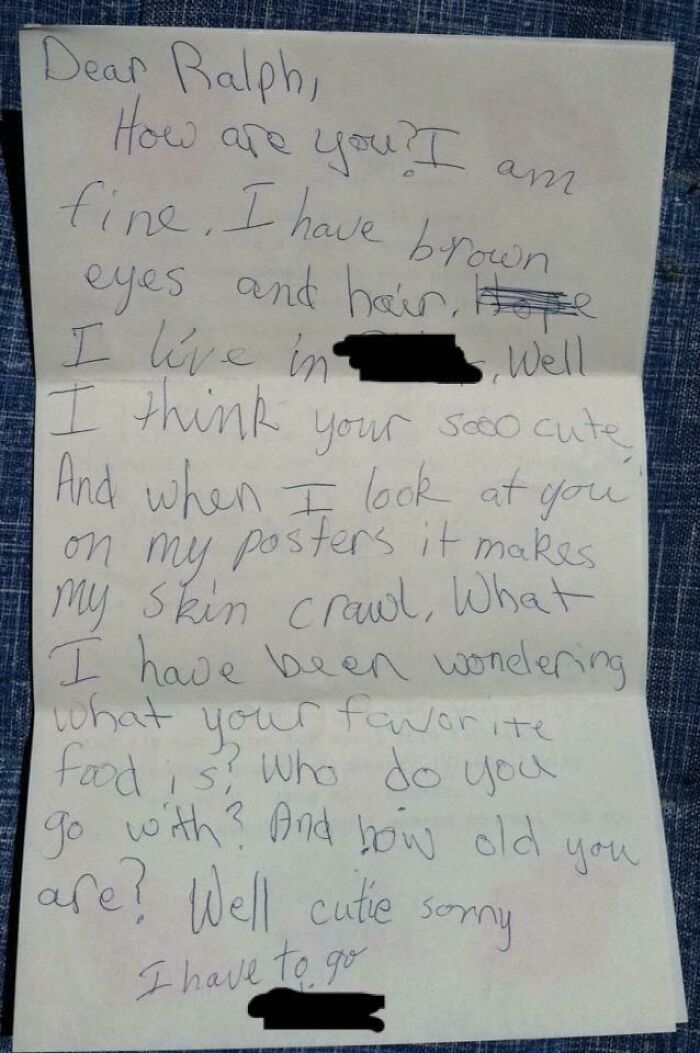 Dear Ralph,
How are you? I am
fine. I have brown
eyes and hair. Hope
I live in , Well
I think your sooo cute.
And when I look at you
on my posters it makes
my skin crawl. What
I have been wondering
what your favorite
food is? Who do you
go with? And how old you
are? Well cutie sorry
I have to go